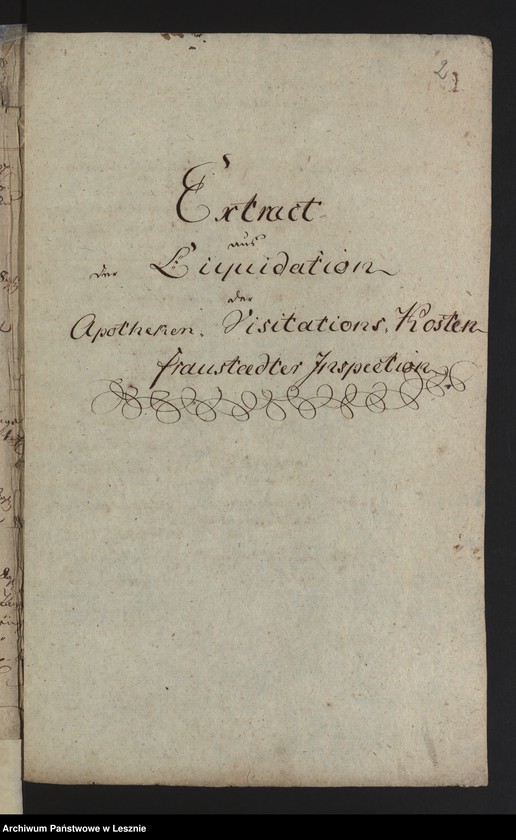 2
1
Extract
aus
der Liquidation
der
Apotheken. Visitations. Kosten
fraustædter Inspection.
Archiwum Państwowe w Lesznie